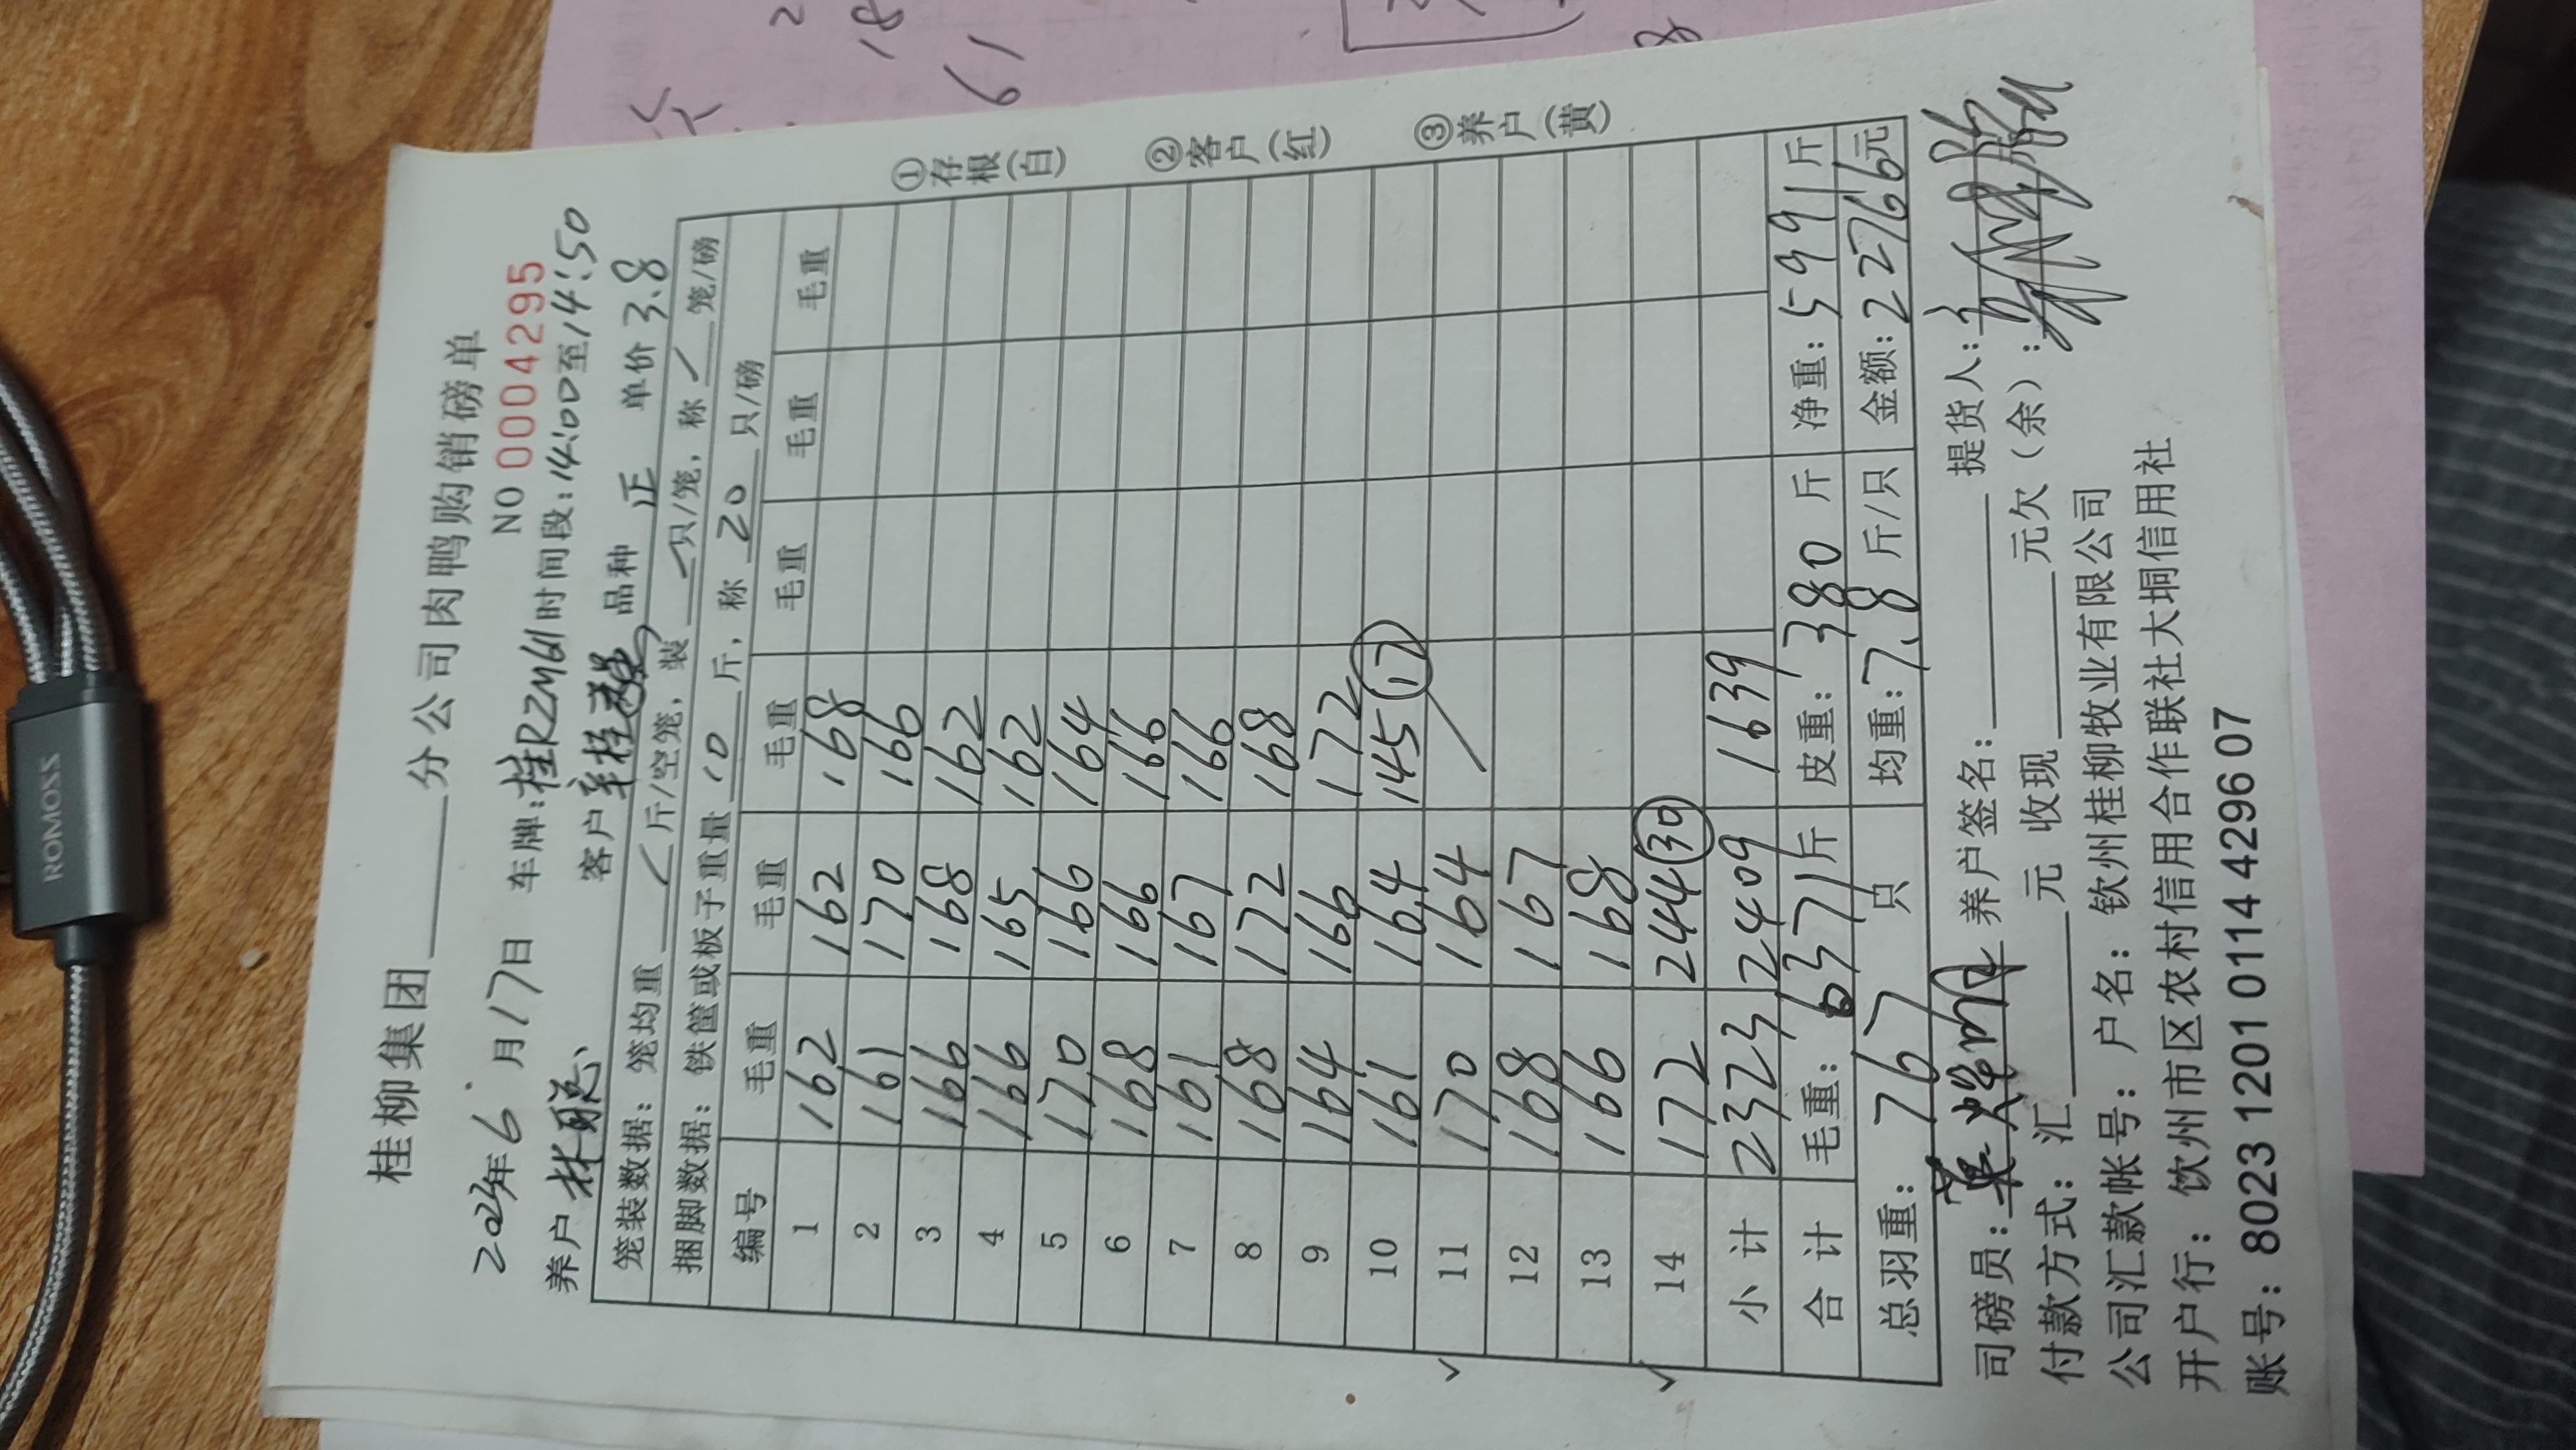 桂柳集团____分公司肉鸭购销磅单
NO 0004295
2024年6月17日 车牌:桂RZM61 时间段:14:00至14:50
养户 林聪 客户 品种 正 单价 3.8
笼装数据: 笼均重 / 斤/空笼, 装 / 只/笼, 称 / 笼/磅
捆脚数据: 铁筐或板子重量 10 斤, 称 20 只/磅
编号 毛重 毛重 毛重 毛重 毛重 毛重
1 162 162 168
2 161 170 166
3 166 168 162
4 166 165 162
5 170 166 164
6 168 166 166
7 161 167 166
8 168 172 168
9 164 166 172
10 161 164 145 (17)
11 170 164
12 168 167
13 166 168
14 172 244 (30)
小计 2323 2409 1639
合计 毛重: 6371斤 皮重: 380 斤 净重: 5991斤
总羽重: 767 只 均重: 7.8 斤/只 金额: 22766元
①存根(白) ②客户(红) ③养户(黄)
司磅员: 养户签名: 提货人:
付款方式: 汇____元 收现____元欠(余):
公司汇款帐号: 户名: 钦州桂柳牧业有限公司
开户行: 钦州市区农村信用合作联社大垌信用社
账号: 8023 1201 0114 4296 07
ROMOSS
18
61
8